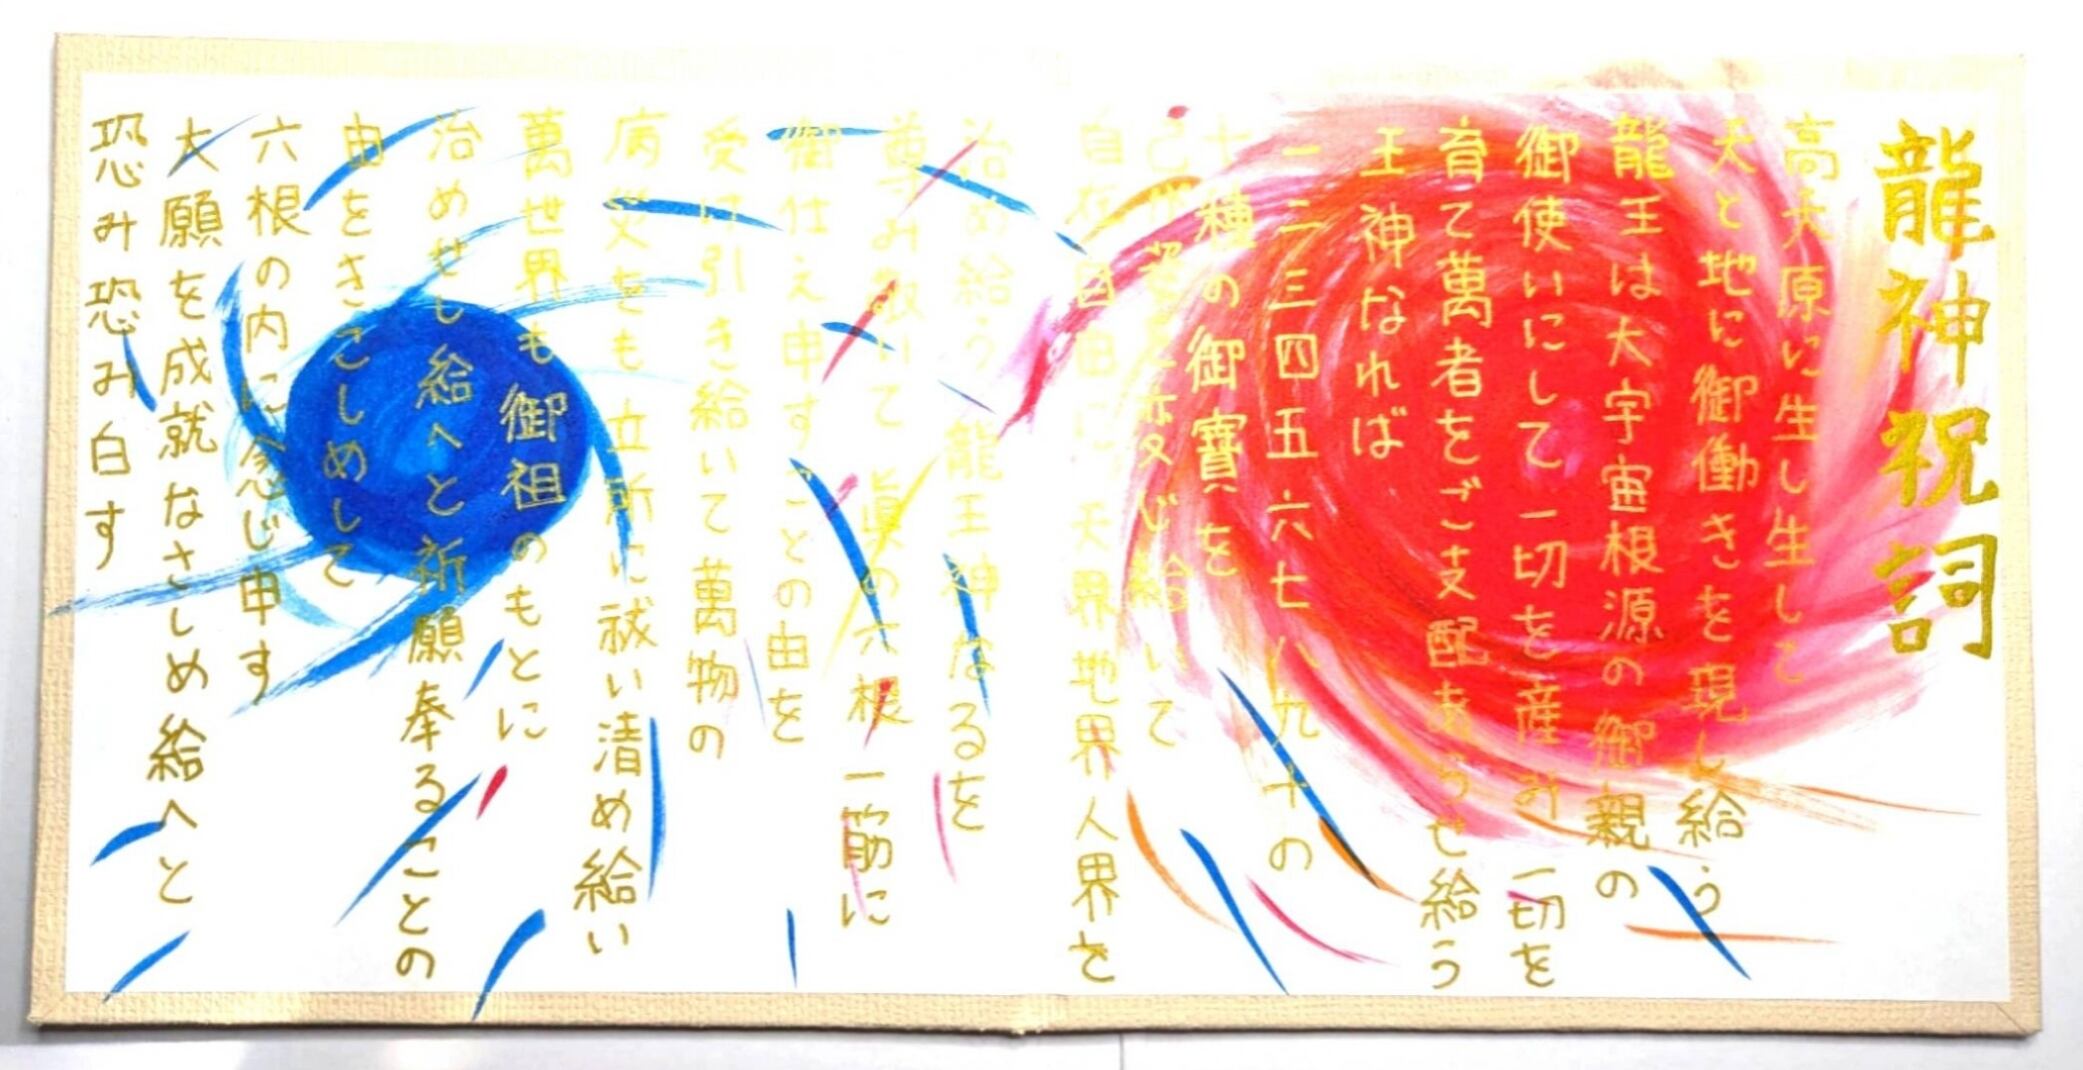 龍神祝詞
高天原に生し生して
天と地に御働きを現し給う
龍王は大宇宙根源の御親の
御使いにして一切を産み一切を
育て萬者をご支配あらせ給う
王神なれば
一二三四五六七八九十の
十種の御寶を
己が姿と変じ給いて
自在自由に天界地界人界を
治め給う龍王神なるを
尊み敬いて眞の六根一筋に
御仕え申すことの由を
受け引き給いて萬物の
病災をも立所に祓い清め給い
萬世界も御祖のもとに
治めせし給へと祈願奉ることの
由をきこしめして
六根の内に念じ申す
大願を成就なさしめ給へと
恐み恐み白す